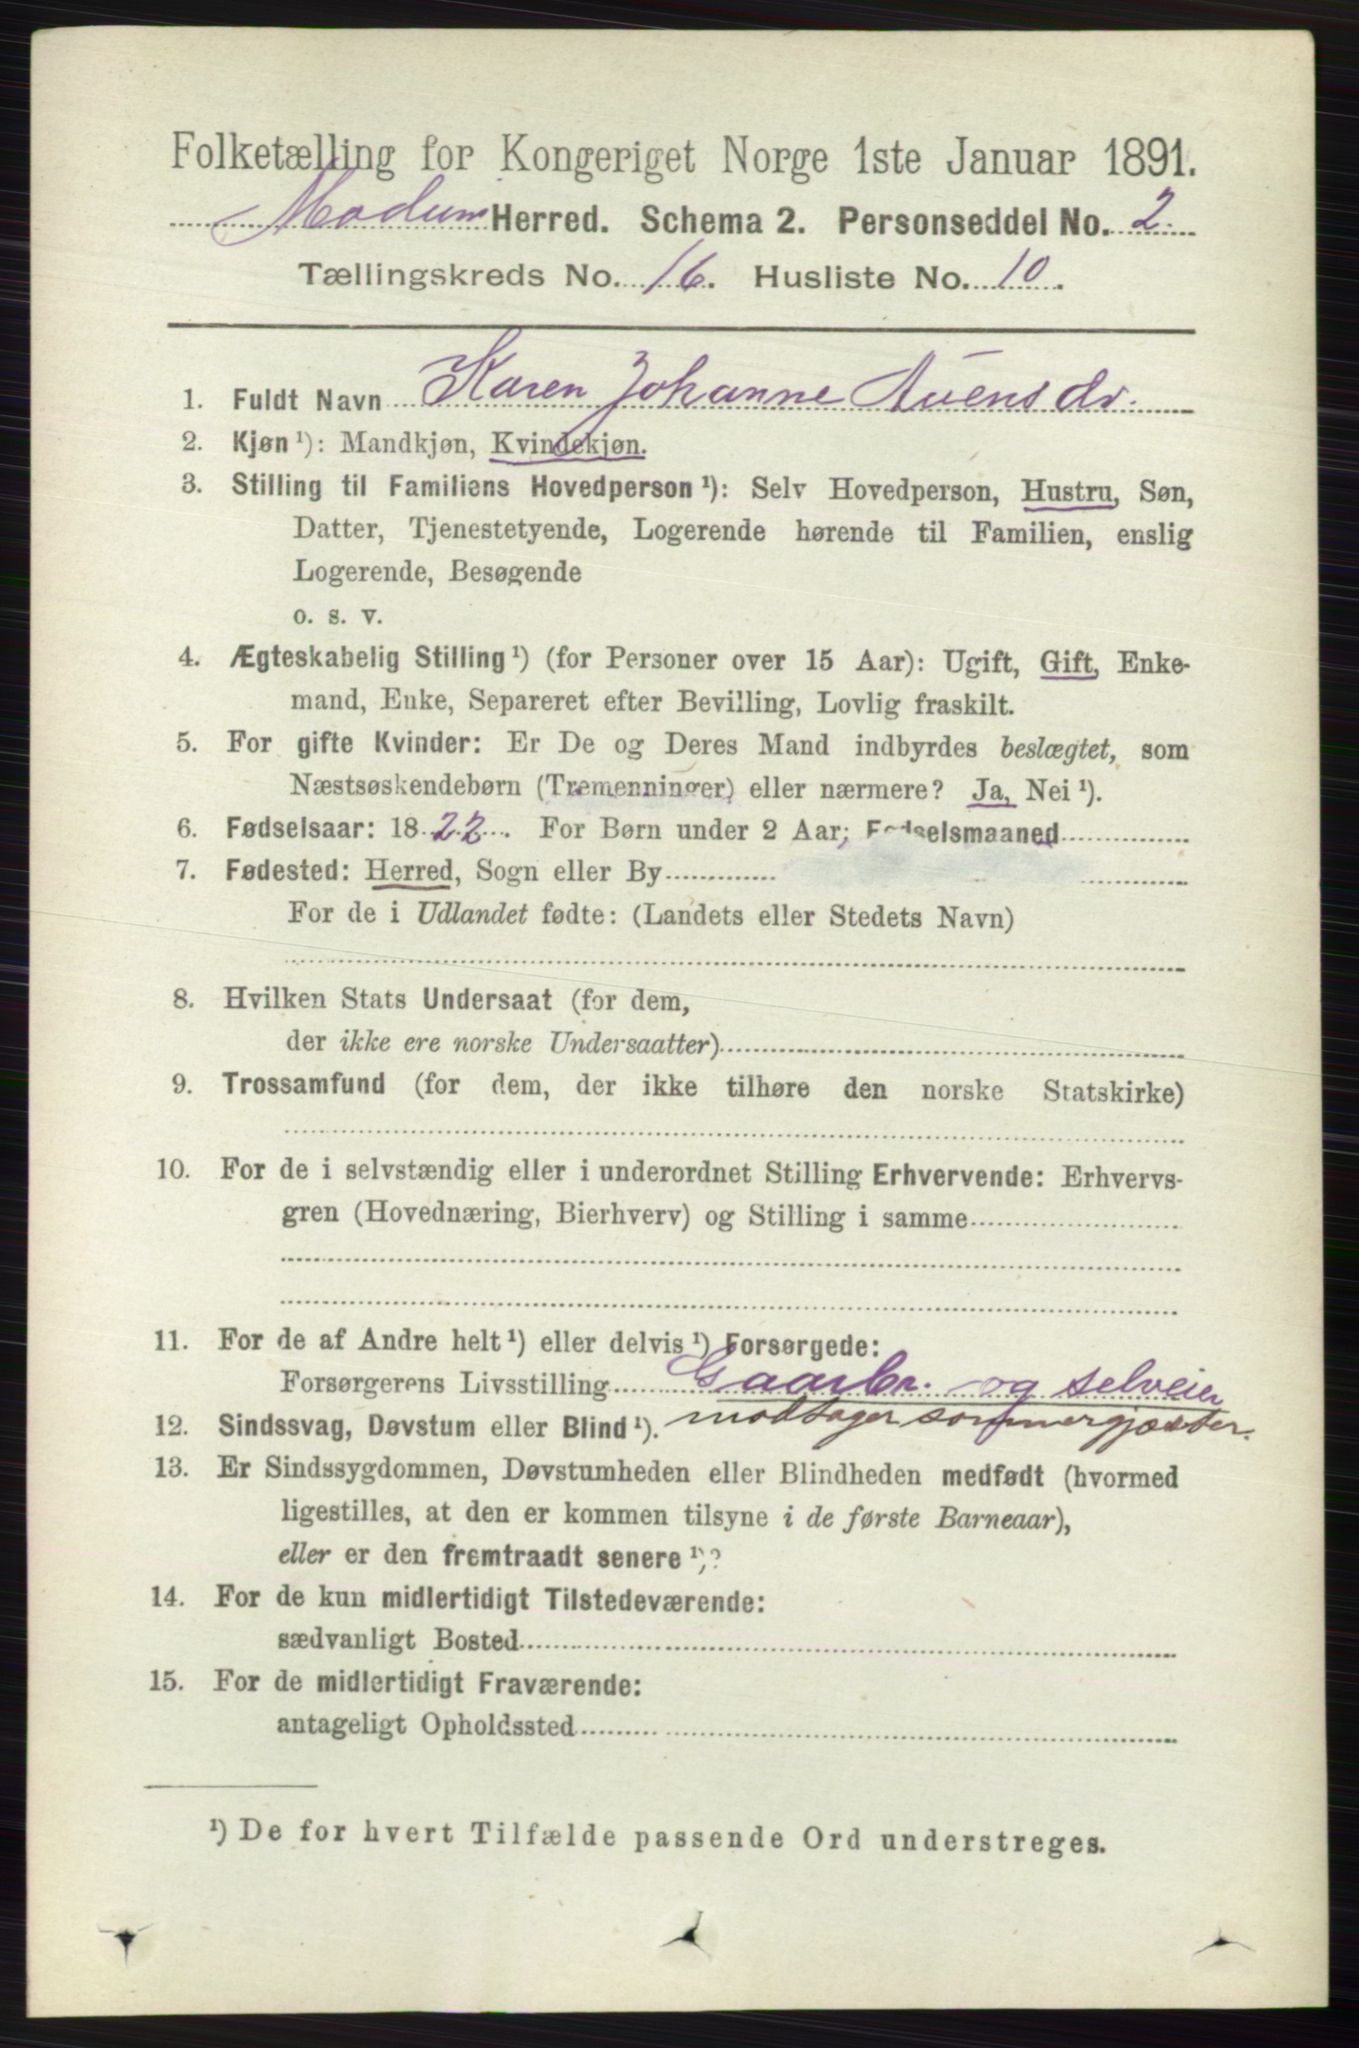 Folketælling for Kongeriget Norge 1ste Januar 1891.
Modum Herred. Schema 2. Personseddel No. 2
Tællingskreds No. 16. Husliste No. 10.
1. Fuldt Navn Karen Johanne Auensdr.
2. Kjøn ¹): Mandkjøn, Kvindekjøn.
3. Stilling til Familiens Hovedperson ¹): Selv Hovedperson, Hustru, Søn,
Datter, Tjenestetyende, Logerende hørende til Familien, enslig
Logerende, Besøgende
o. s. v.
4. Ægteskabelig Stilling ¹) (for Personer over 15 Aar): Ugift, Gift, Enke-
mand, Enke, Separeret efter Bevilling, Lovlig fraskilt.
5. For gifte Kvinder: Er De og Deres Mand indbyrdes beslægtet, som
Næstsøskendebørn (Tremenninger) eller nærmere? Ja, Nei ¹).
6. Fødselsaar: 1822. For Børn under 2 Aar; Fødselsmaaned
7. Fødested: Herred, Sogn eller By
For de i Udlandet fødte: (Landets eller Stedets Navn)
8. Hvilken Stats Undersaat (for dem,
der ikke ere norske Undersaatter)
9. Trossamfund (for dem, der ikke tilhøre den norske Statskirke)
10. For de i selvstændig eller i underordnet Stilling Erhvervende: Erhvervs-
gren (Hovednæring, Bierhverv) og Stilling i samme
11. For de af Andre helt ¹) eller delvis ¹) Forsørgede:
Forsørgerens Livsstilling Gaarbr. og selveier
12. Sindssvag, Døvstum eller Blind ¹). modtager sommergjæster.
13. Er Sindssygdommen, Døvstumheden eller Blindheden medfødt (hvormed
ligestilles, at den er kommen tilsyne i de første Barneaar),
eller er den fremtraadt senere ¹)?
14. For de kun midlertidigt Tilstedeværende:
sædvanligt Bosted
15. For de midlertidigt Fraværende:
antageligt Opholdssted
¹) De for hvert Tilfælde passende Ord understreges.